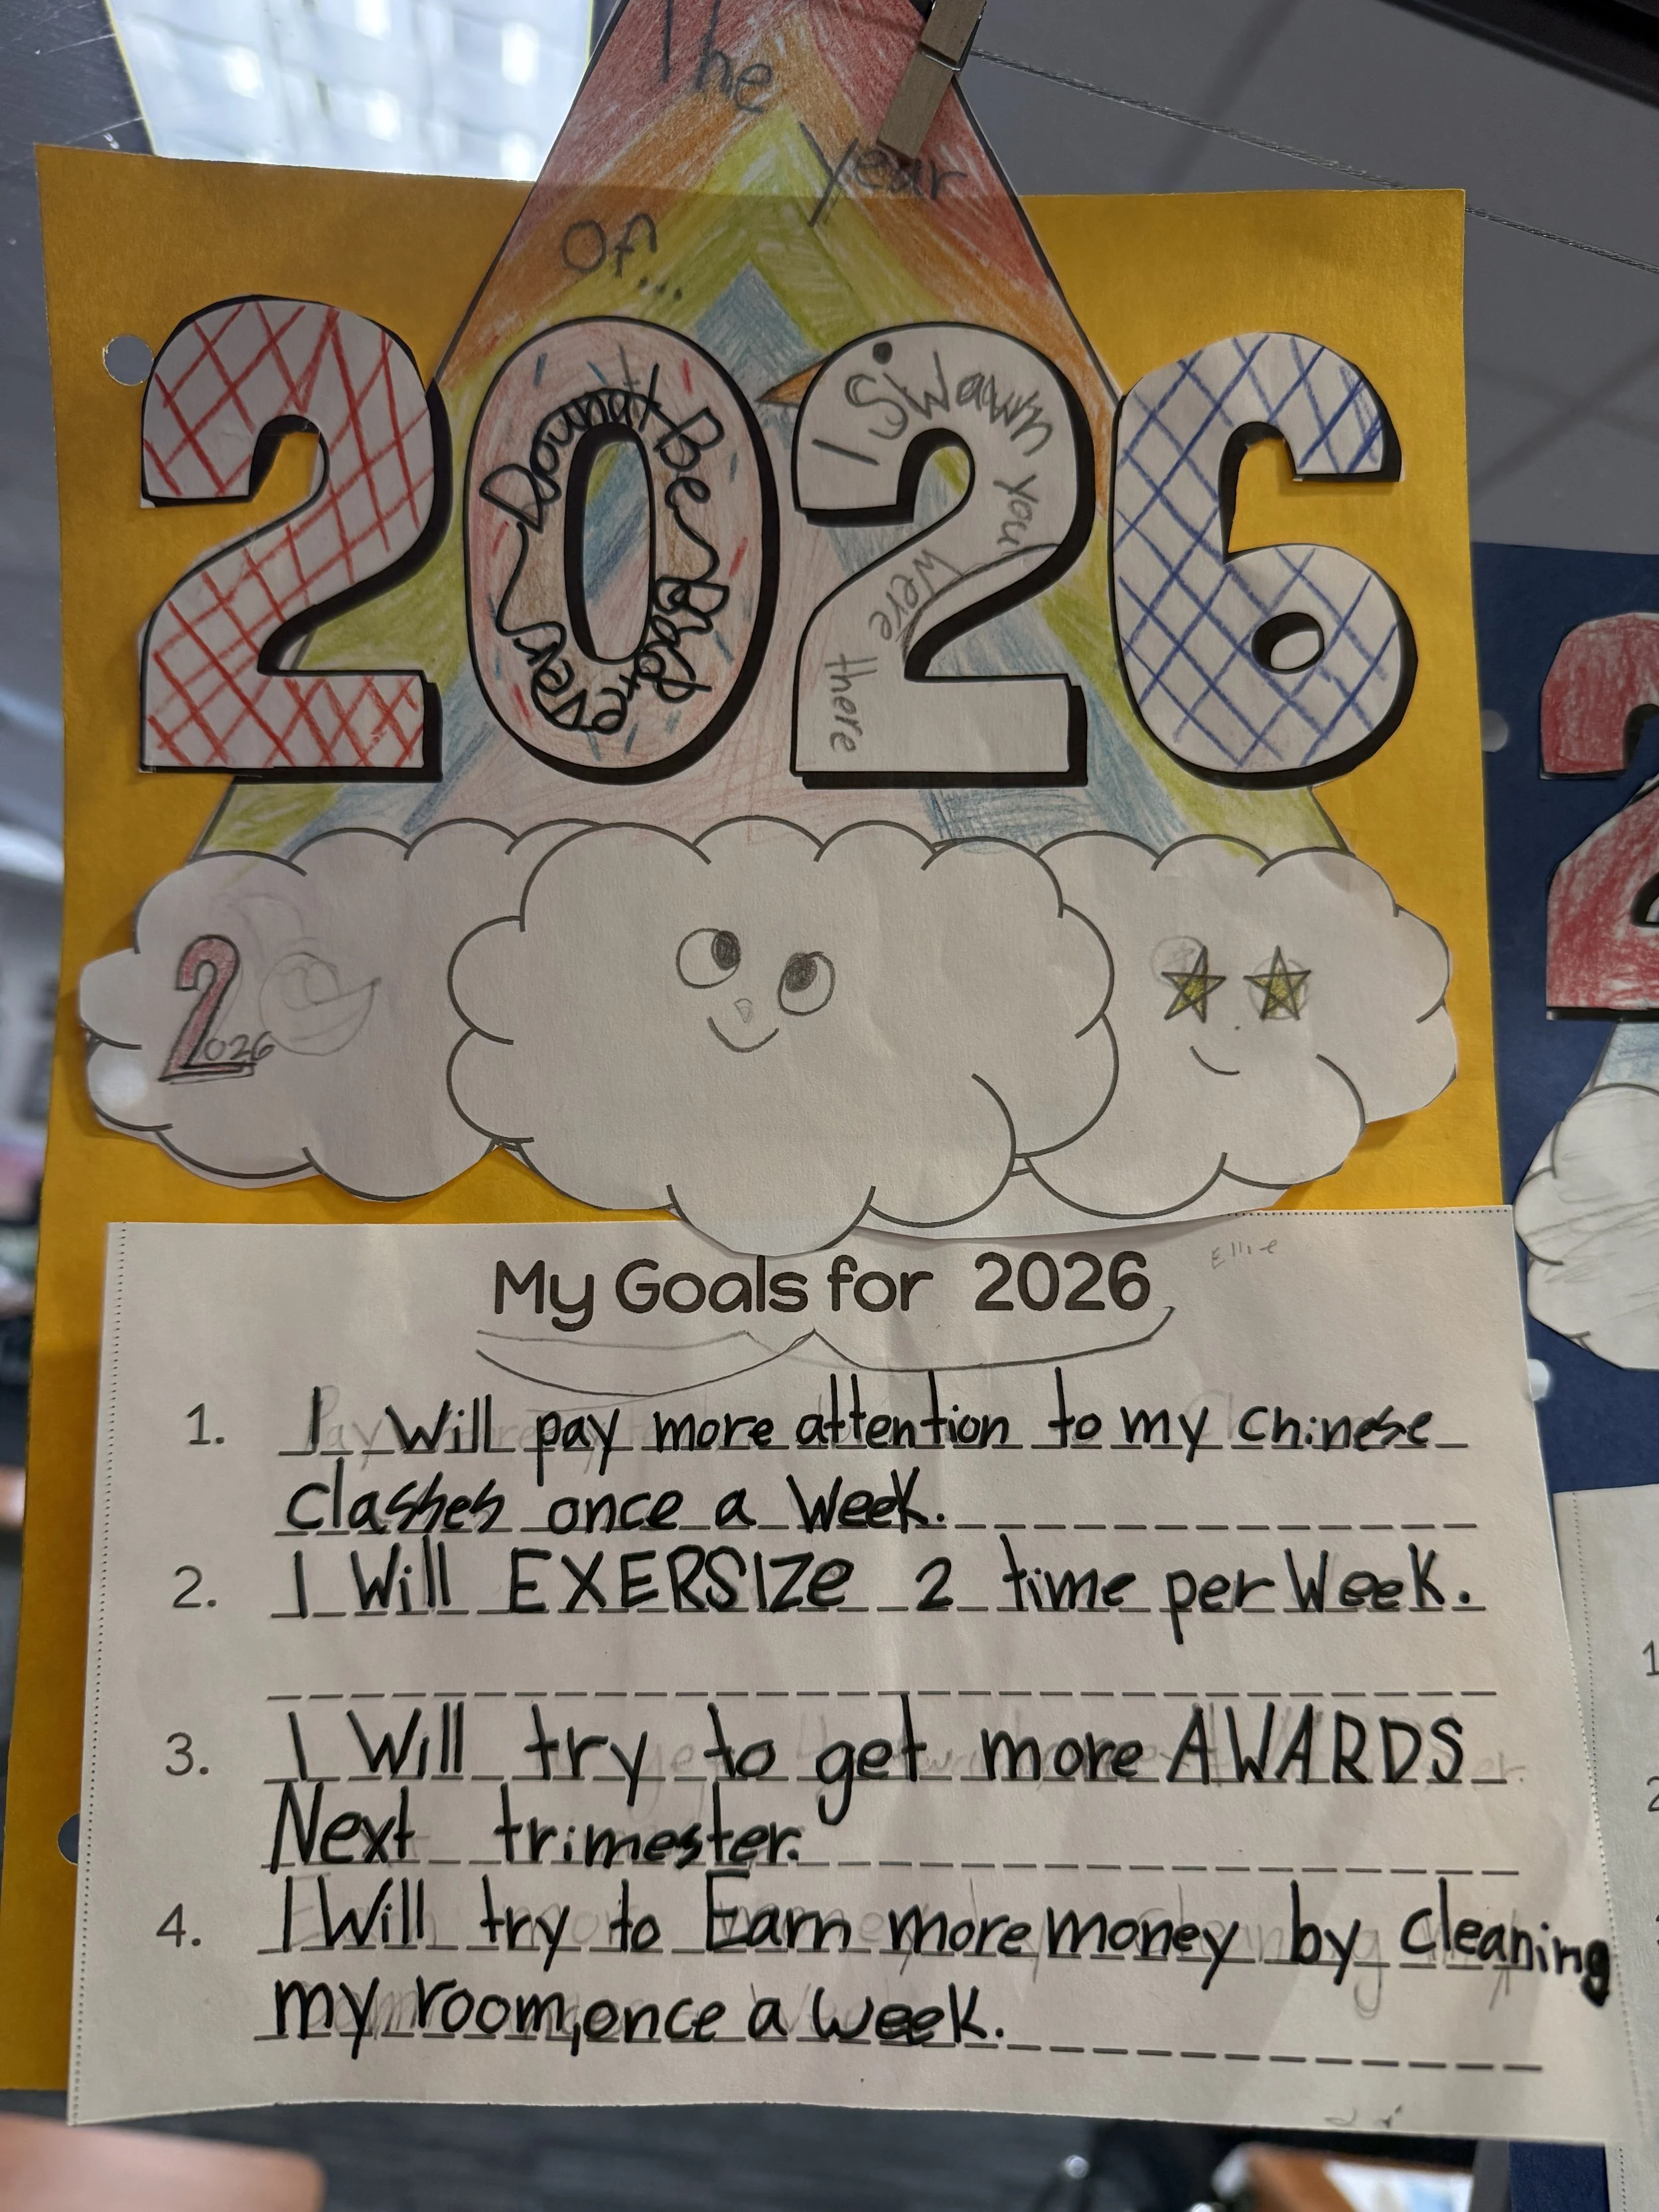 The
year
of...
2026
Dounat Be Bad
ever
I Swawn you were there
2026
Ellie
My Goals for 2026
1. I Will pay more attention to my Chinese
classes once a Week.
2. I Will EXERSIZe 2 time per Week.
3. I Will try to get more AWARDS
Next trimester.
4. I Will try to Earn more money by cleaning
my room, once a week.
2
1
2